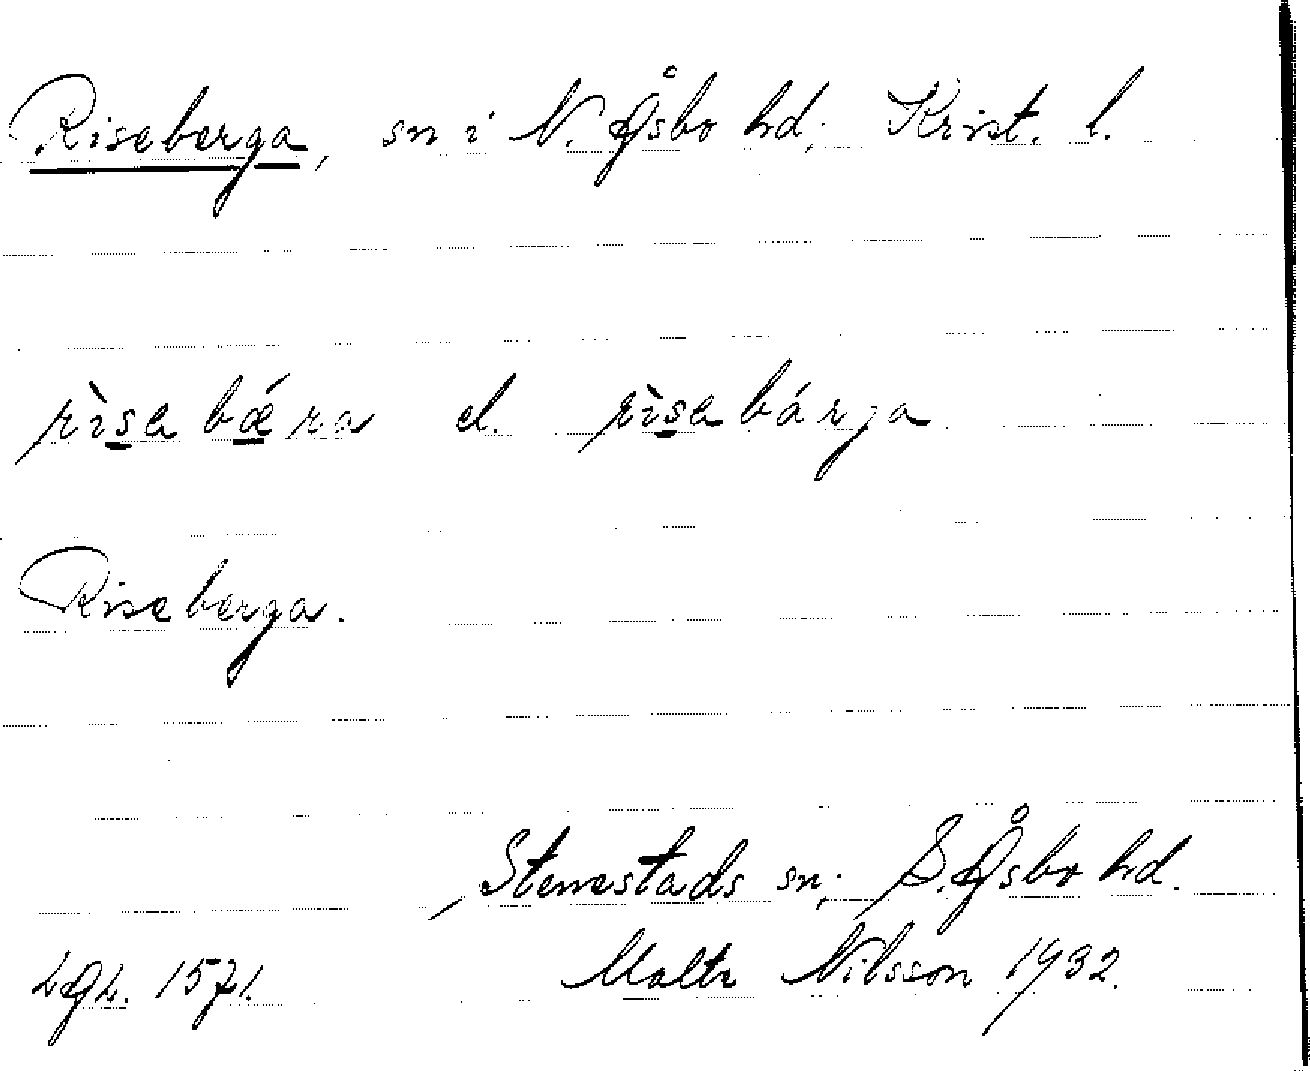 Riseberga, sn i N. Åsbo hd; Krist. l.
rìsabǽra el. rìsabárja
Riseberga.
Stenestads sn; S. Åsbo hd.
Lgh. 1571. Malte Nilsson 1932.